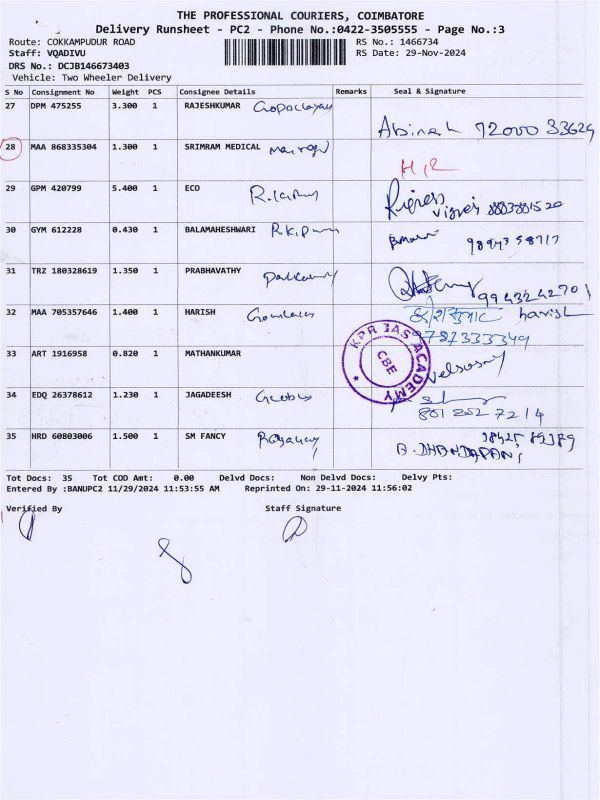 THE PROFESSIONAL COURIERS, COIMBATORE
Delivery Runsheet - PC2 - Phone No.:0422-3505555 - Page No.:3
Route: COKKAMPUDUR ROAD
RS No.: 1466734
Staff: VQADIVU
RS Date: 29-Nov-2024
DRS No.: DCJB146673403
Vehicle: Two Wheeler Delivery
S No Consignment No Weight PCS Consignee Details Remarks Seal & Signature
27 DPM 475255 3.300 1 RAJESHKUMAR
Abinesh 72000 33629
28 MAA 868335304 1.300 1 SRIMRAM MEDICAL
29 GPM 420799 5.400 1 ECO
30 GYM 612228 0.430 1 BALAMAHESHWARI
31 TRZ 180328619 1.350 1 PRABHAVATHY
32 MAA 705357646 1.400 1 HARISH
harish
9787333349
33 ART 1916958 0.820 1 MATHANKUMAR
KPR IAS ACADEMY
CBE
34 EDQ 26378612 1.230 1 JAGADEESH
801 252 7214
35 HRD 60803006 1.500 1 SM FANCY
A. DHANDAPANI
Tot Docs: 35 Tot COD Amt: 0.00 Delvd Docs: Non Delvd Docs: Delvy Pts:
Entered By :BANUPC2 11/29/2024 11:53:55 AM Reprinted On: 29-11-2024 11:56:02
Verified By Staff Signature